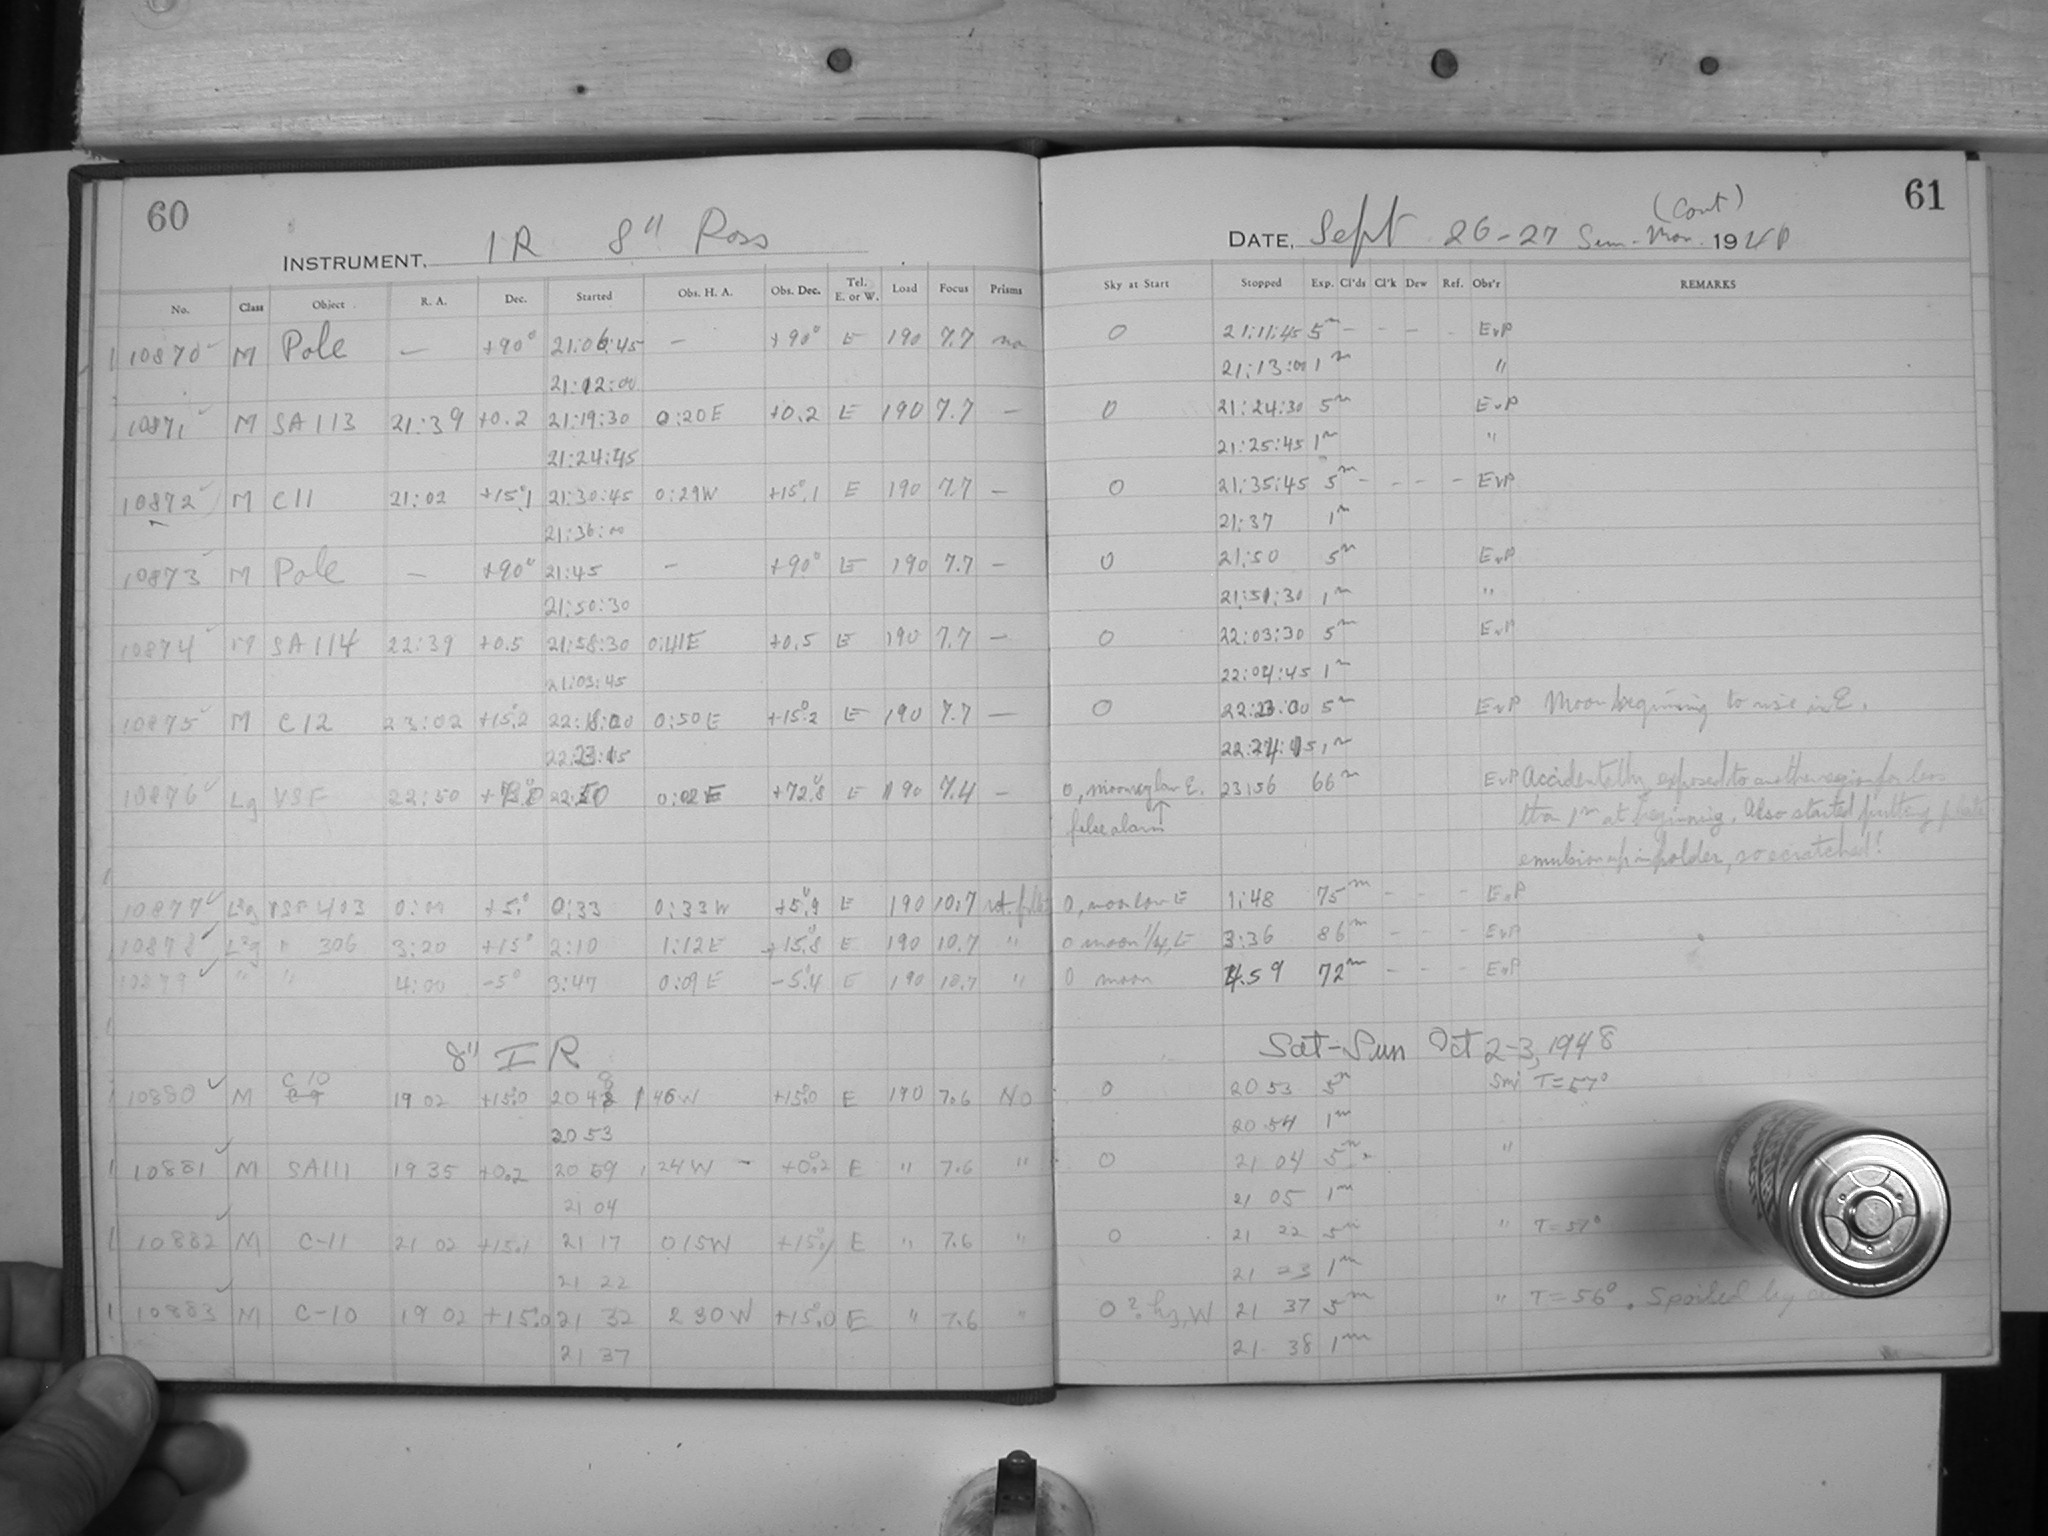 60
INSTRUMENT, IR 8" Ross
No. Class Object R. A. Dec. Started Obs. H. A. Obs. Dec. Tel. E. or W. Load Focus Prisms
10870 M Pole — +90° 21:06:45 — +90° E 190 7.7 no
21:12:00
10871 M SA 113 21:39 +0.2 21:19:30 0:20E +0.2 E 190 7.7 —
21:24:45
10872 M C11 21:02 +15°.1 21:30:45 0:29W +15°.1 E 190 7.7 —
21:36:00
10873 M Pole — +90° 21:45 — +90° E 190 7.7 —
21:50:30
10874 M SA 114 22:39 +0.5 21:58:30 0:41E +0.5 E 190 7.7 —
21:03:45
10875 M C12 23:02 +15°.2 22:18:00 0:50E +15°.2 E 190 7.7 —
22:23:15
10876 Lg VSF 22:50 22:50 0:02E +72°.8 E 190 7.4 —
10877 L2g VSF 403 0:00 +5° 0:33 0:33W +5°.9 E 190 10.7
10878 L2g " 306 3:20 +15° 2:10 1:12E +15°.8 E 190 10.7 "
10879 " " 4:00 -5° 3:47 0:09E -5°.4 E 190 10.7 "
8" IR
C 10
10880 M 19 02 +15°.0 20 48 1 46W +15°.0 E 190 7.6 No
20 53
10881 M SA111 19 35 +0.2 20 59 1 24W - +0°.2 E " 7.6 "
21 04
10882 M C-11 21 02 +15.1 21 17 0 15W +15°.1 E " 7.6 "
21 22
10883 M C-10 19 02 +15°.0 21 32 2 30W +15°.0 E " 7.6 "
21 37
61
(Cont)
DATE, Sept 26-27 Sun-Mon. 1948
Sky at Start Stopped Exp. Cl'ds Cl'k Dew Ref. Obs'r REMARKS
0 21:11:45 5m - - - - EvP
21:13:00 1m "
0 21:24:30 5m EvP
21:25:45 1m "
0 21:35:45 5m - - - - EvP
21:37 1m
0 21:50 5m EvP
21:51:30 1m "
0 22:03:30 5m EvP
22:04:45 1m
0 22:23:00 5m EvP Moon beginning to rise in E.
22:24:15 1m
0, moon glow E. 23:56 66m EvP Accidentally exposed to another region for less
false alarm than 1m at beginning. Also started putting plate
emulsion up in holder, so scratched!
0, moon low E 1:48 75m - - - EvP
0 moon E 3:36 86m - - - EvP
0 moon 4:59 72m - - - EvP
Sat-Sun Oct 2-3, 1948
0 20 53 5m Smj T=57°
20 54 1m
0 21 04 5m "
21 05 1m
0 21 22 5m " T=57°
21 23 1m
0? hz, W 21 37 5m " T=56°. Spoiled by
21 38 1m